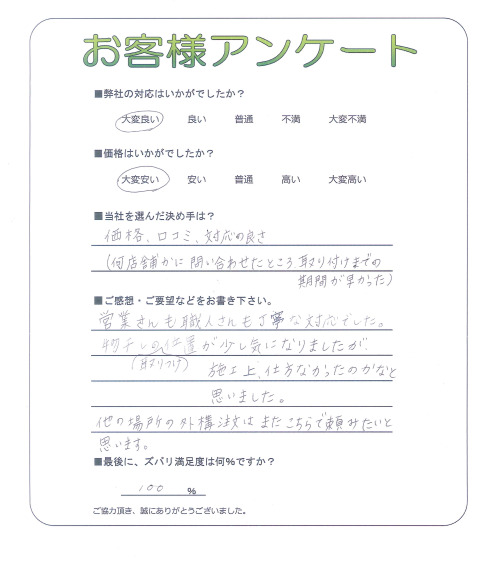 お客様アンケート
■弊社の対応はいかがでしたか？
大変良い 良い 普通 不満 大変不満
■価格はいかがでしたか？
大変安い 安い 普通 高い 大変高い
■当社を選んだ決め手は？
価格、口コミ、対応の良さ
(何店舗かに問い合わせたところ取り付けまでの
期間が早かった)
■ご感想・ご要望などをお書き下さい。
営業さんも職人さんも丁寧な対応でした。
物干しの位置が少し気になりましたが、
(取りつけ) 施工上、仕方なかったのかなと
思いました。
他の場所の外構注は またこちらで頼みたいと
思います。
■最後に、ズバリ満足度は何%ですか？
100 %
ご協力頂き、誠にありがとうございました。